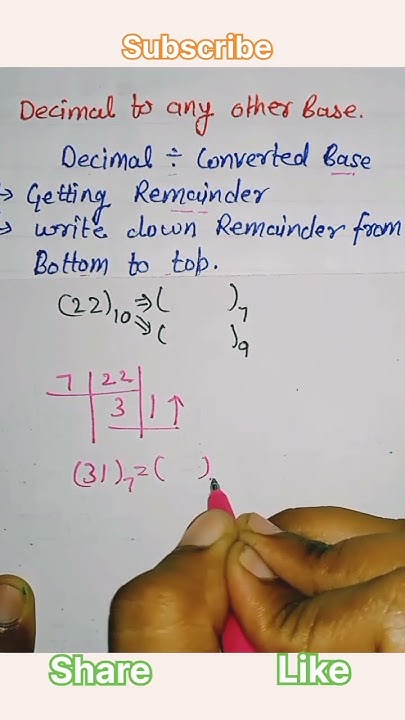 Subscribe
Decimal to any other Base.
Decimal ÷ Converted Base
→ Getting Remainder
→ write down Remainder from
Bottom to top.
(22)₁₀ ⇒ (    )₇
⇒ (    )₉
7 | 22
3 | 1 ↑
(31)₇ = (    )
Share Like